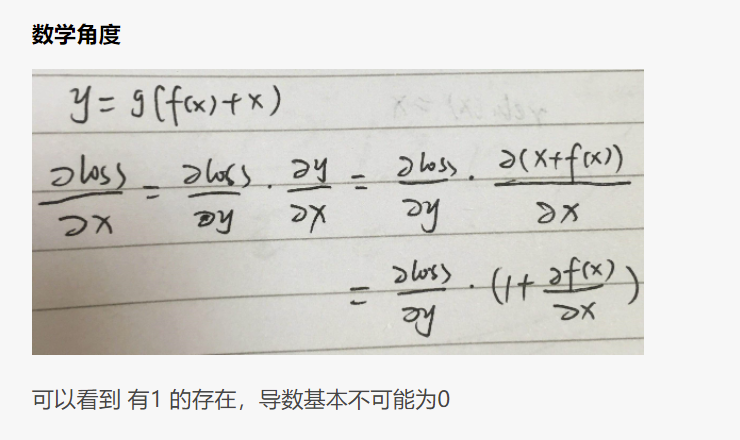 数学角度
y = g(f(x)+x)
∂loss/∂x = ∂loss/∂y · ∂y/∂x = ∂loss/∂y · ∂(x+f(x))/∂x
= ∂loss/∂y · (1+ ∂f(x)/∂x)
可以看到 有1 的存在，导数基本不可能为0